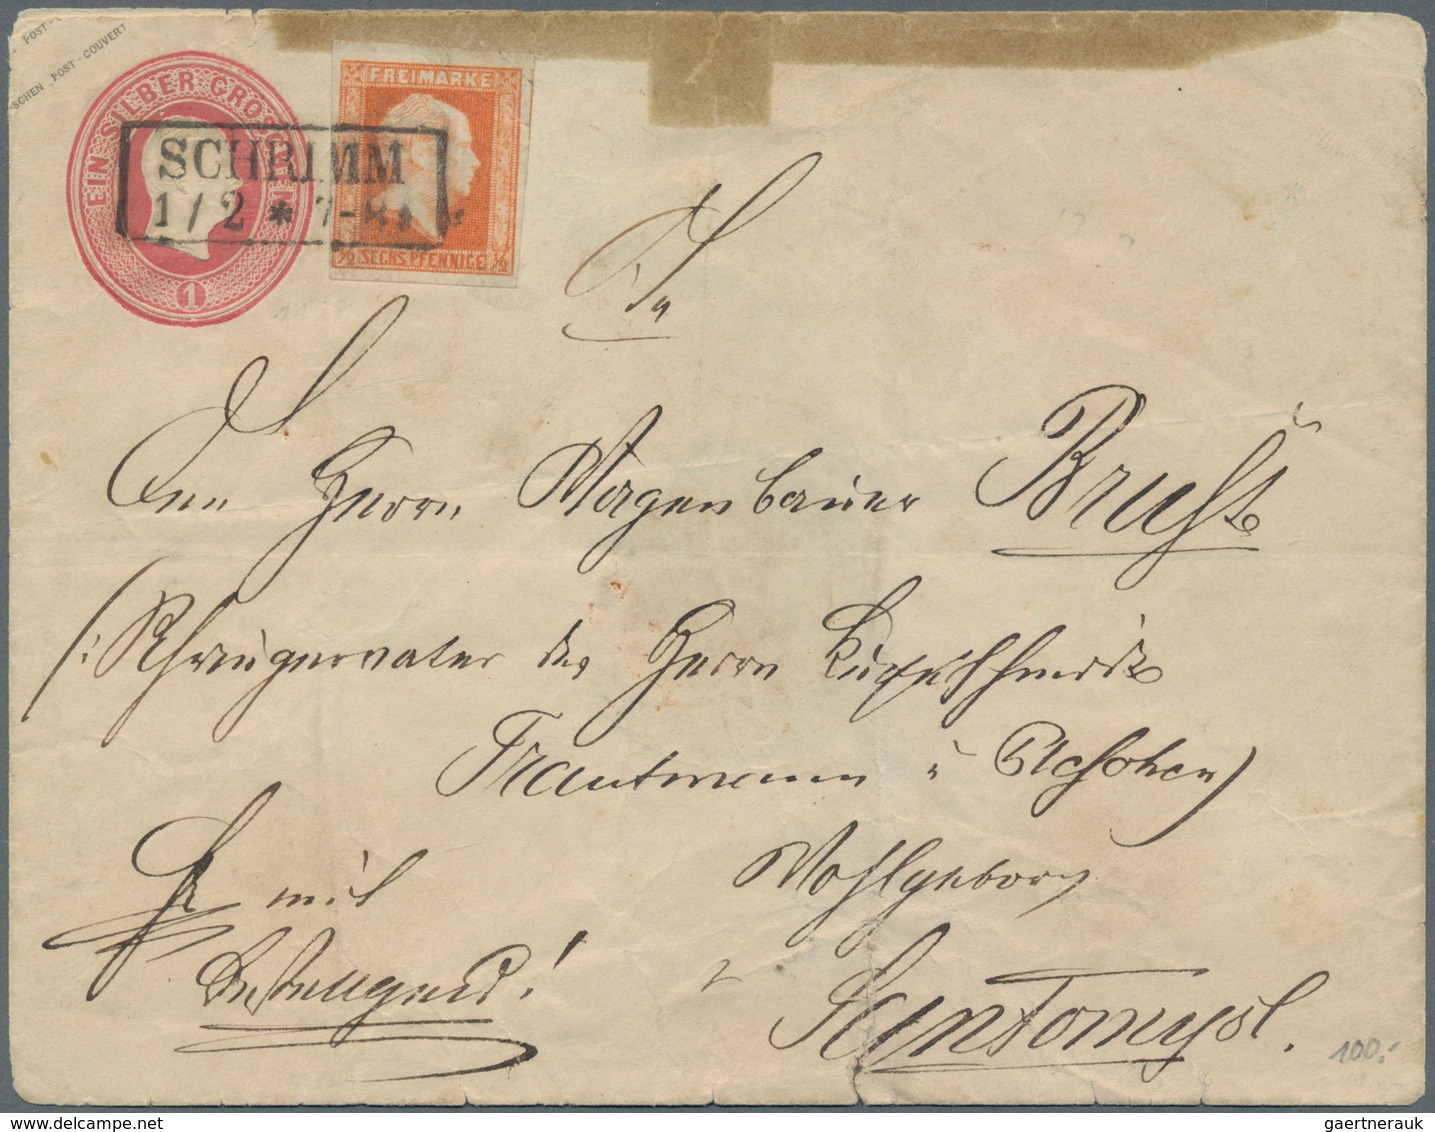 POST-
SCHEN POST-COUVERT
EIN SILBER GROSCHEN
1
FREIMARKE
½ SECHS PFENNIGE ½
SCHRIMM
1/2 * 7-8
An
den Herrn Wagenbauer Brust
(: Schwiegervater des Herrn
Trautmann
Wohlgeborn
mit
Santomysl.
100.-
gaertnerauk